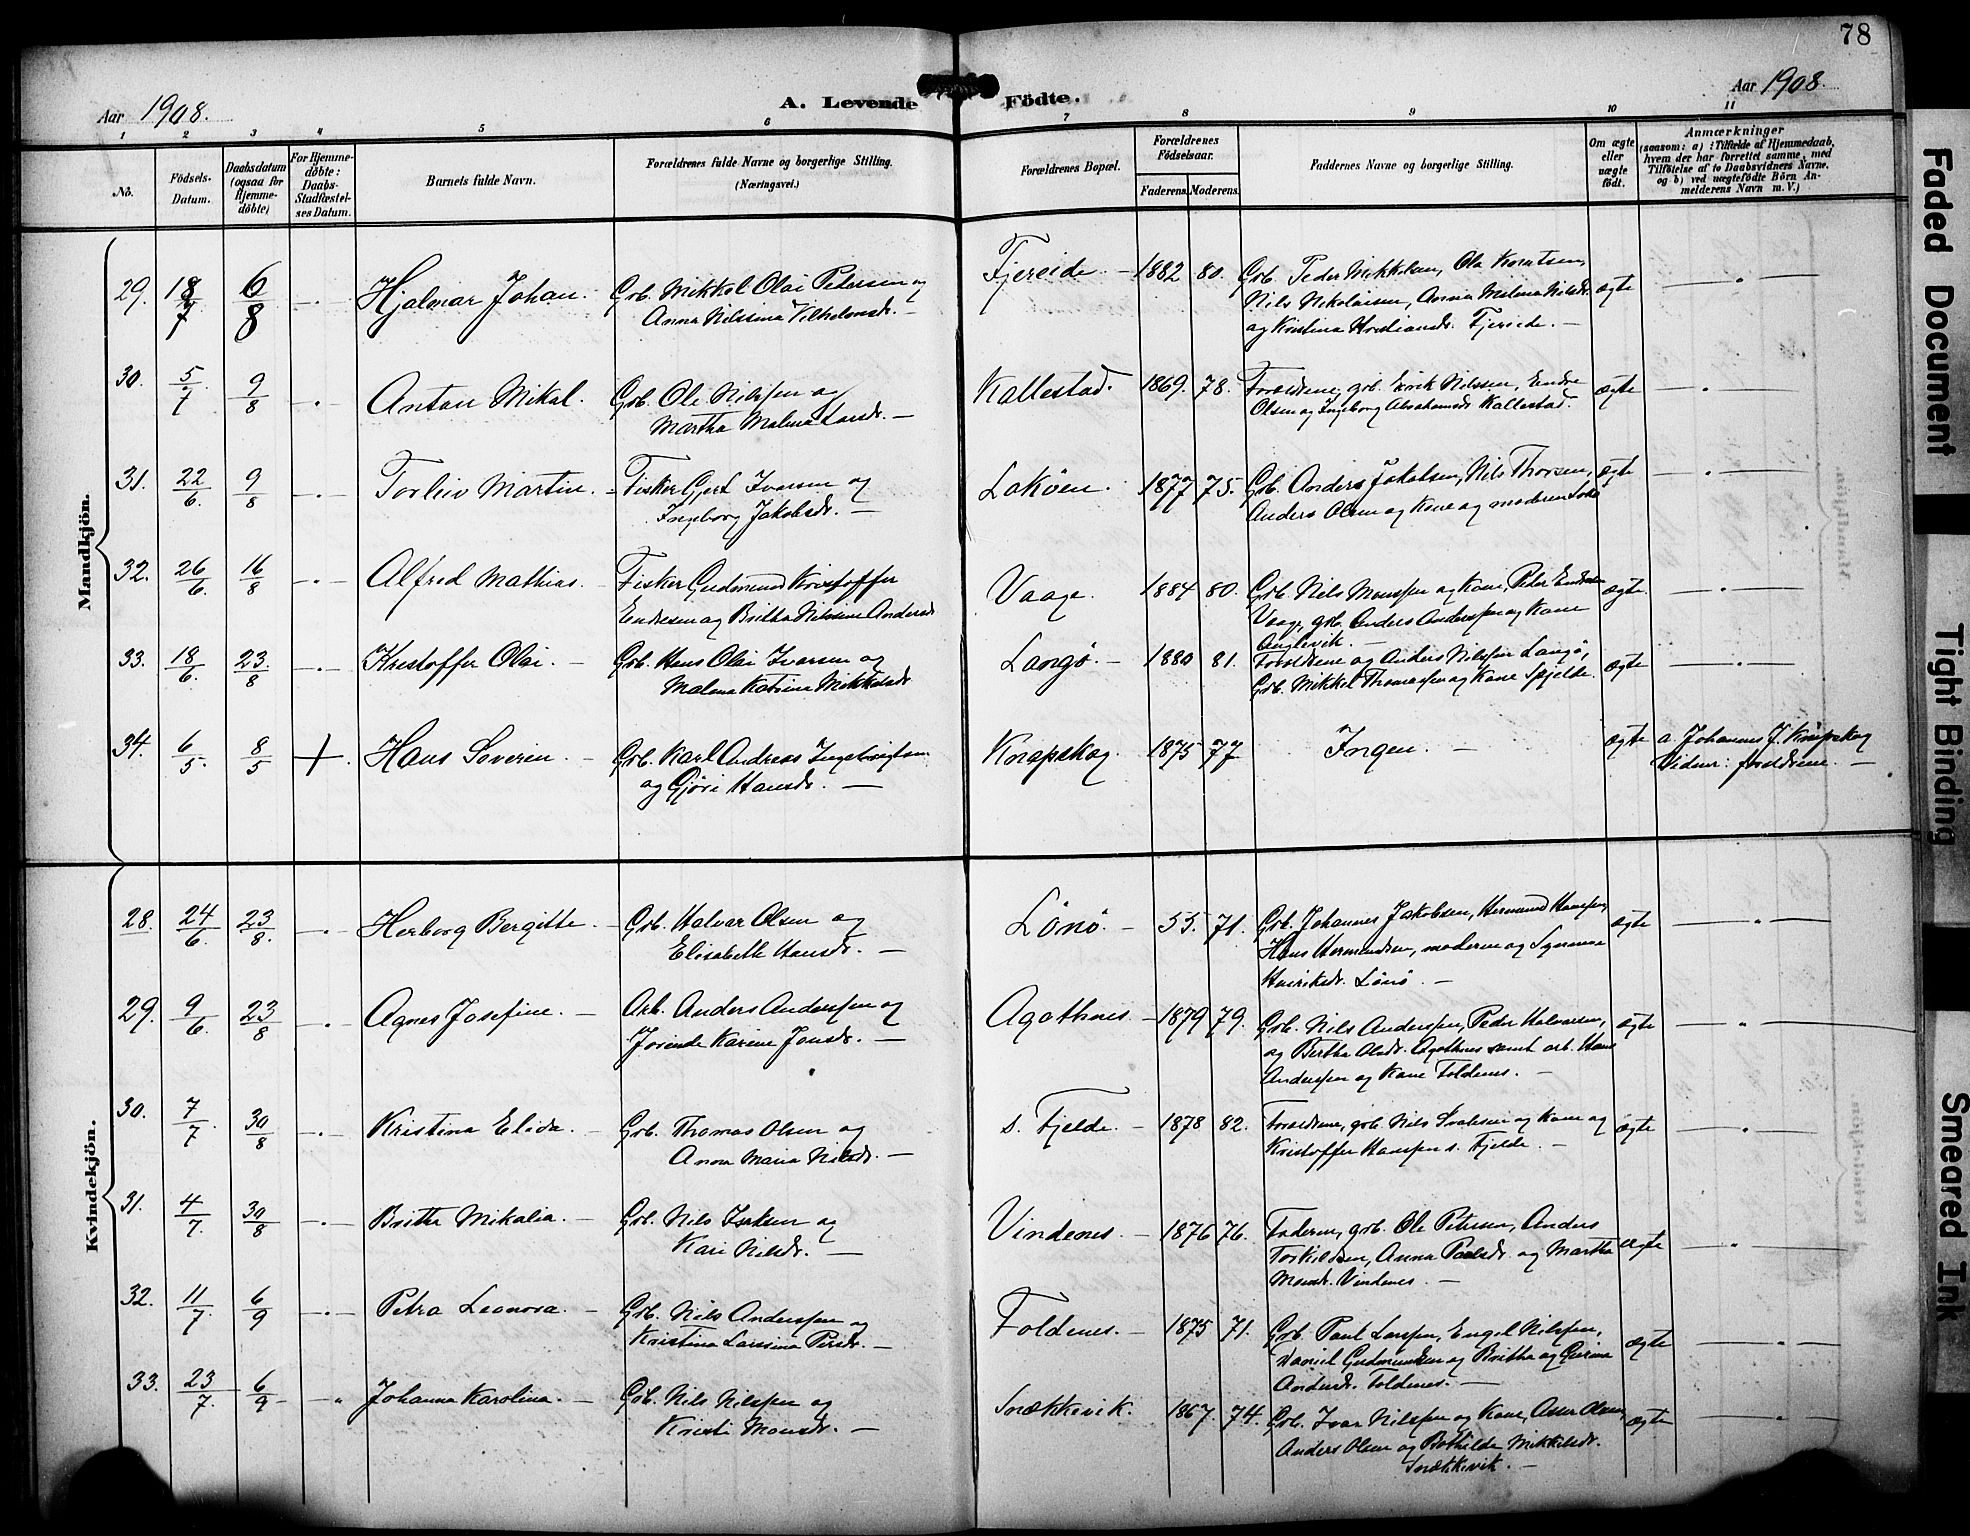 78
Aar 1908.
A. Levende Födte.
Aar 1908.
1 2 3 4 5 6 7 8 9 10 11
No.
Fødsels-
Datum.
Daabsdatum
(ogsaa for
Hjemme-
døbte)
For Hjemme-
døbte:
Daabs-
Stadfæstel-
ses Datum.
Barnets fulde Navn.
Forældrenes fulde Navne og borgerlige Stilling.
(Næringsvei.)
Forældrenes Bopæl.
Forældrenes
Fødselsaar.
Faderens. Moderens.
Faddernes Navne og borgerlige Stilling.
Om ægte
eller
uægte
født.
Anmærkninger
(saasom: a) i Tilfælde af Hjemmedaab,
hvem der har forrettet samme, med
Tilføielse af to Daabsvidners Navne.
og b) ved uægtefødte Børn An-
melderens Navn m. V.)
Mandkjön.
29. 18/7 6/8 Hjalmar Johan. Grb. Mikkel Olai Petersen og
Anna Nilsina Vilhelmsdr. —
Fjereide. — 1882 80. Grb. Peder Mikkelsen, Ola Knutsen,
Nils Nikolaisen, Anna Malena Nilsdr.
og Kristina Kristiansdr. Fjereide. —
ægte
30. 5/7 9/8 Anton Mikal. Grb. Ole Nilssen og
Martha Malena Larsdr. —
Kallestad. 1869. 78. Forældrene, grb. Eirik Nilssen, Endre
Olsen og Ingeborg Abrahamsdr. Kallestad.
ægte
31. 22/6 9/8 Torleiv Martin. Fisker Gert Iversen og
Ingeborg Jakobsdr. —
Lokøen. 1877 75. Grb. Anders Jakobsen, Nils Thorsen,
Anders Olsen og Kone og moderen
ægte
32. 26/6 16/8 Alfred Mathias. Fisker Gudmund Kristoffer
Endresen og Britha Nilsine Andersdr.
Vaage. 1884 80. Grb. Nils Monssen og Kone, Peder Endresen
Vaage, grb. Anders Anderssen og Kone
Anglevik. —
ægte
33. 18/6 23/8 Kristoffer Olai. — Grb. Hans Olai Iversen og
Malena Katrina Mikkelsdr.
Langø. — 1880 81. Forældrene og Anders Nilssen Langø,
Grb. Mikkel Thomassen og Kone Spjelde.
ægte
34. 6/5 8/5 + Hans Severin. — Grb. Karl Andreas Ingebrigtsen
og Gjøri Hansdr. —
Knapskog. 1875 77 Ingen. — ægte a. Johannes J. Knapskog
Vidner: forældrene. —
Kvindekjön.
28. 24/6 23/8 Herborg Bergitte. — Grb. Halvar Olsen og
Elisabeth Hansdr. —
Lönö. — 55. 71. Grb. Johannes Jakobsen, Hermund Hanssen,
Hans Hermundsen, moderen og Synneva
Henriksdr. Lönö. —
ægte
29. 9/6 23/8 Agnes Josefine. — Arb. Anders Anderssen og
Jorinde Karine Jonsdr. —
Agothnes — 1879 79. Grb. Nils Anderssen, Peder Halvorsen,
og Bertha Olsdr. Agothnes samt arb. Hans
Anderssen og Kone Foldenes. —
ægte
30. 7/7 30/8 Kristina Elida. — Grb. Thomas Olsen og
Anna Maria Nilsdr. —
s. Fjelde. — 1878 82. Forældrene, grb. Nils og Kone og
Kristoffer Hanssen s. Fjelde. —
ægte
31. 4/7 30/8 Britha Mikalia. — Grb. Nils Isaksen og
Kari Nilsdr. —
Vindenes. — 1876 76. Faderen, grb. Ole Petersen, Anders
Torkildsen, Anna Paulsdr. og Martha
Monsdr. Vindenes. —
ægte
32. 11/7 6/9 Petra Leonora. — Grb. Nils Anderssen og
Kristina Larsina Persdr. —
Foldenes. — 1875 71. Grb. Paul Larssen, Engel Nilssen,
Daniel Gudmundsen og Britha og Gurina
Andersdr. Foldenes. —
ægte
33. 23/7. 6/9 Johanna Karolina. — Grb. Nils Nilssen og
Kristi Monsdr. —
Snækkevik. 1867. 74. Grb. Ivar Nilssen og Kone, Olsen,
Anders Olsen og Bothilde Mikkelsdr.
Snækkevik. —
ægte
Faded Document
Tight Binding
Smeared Ink